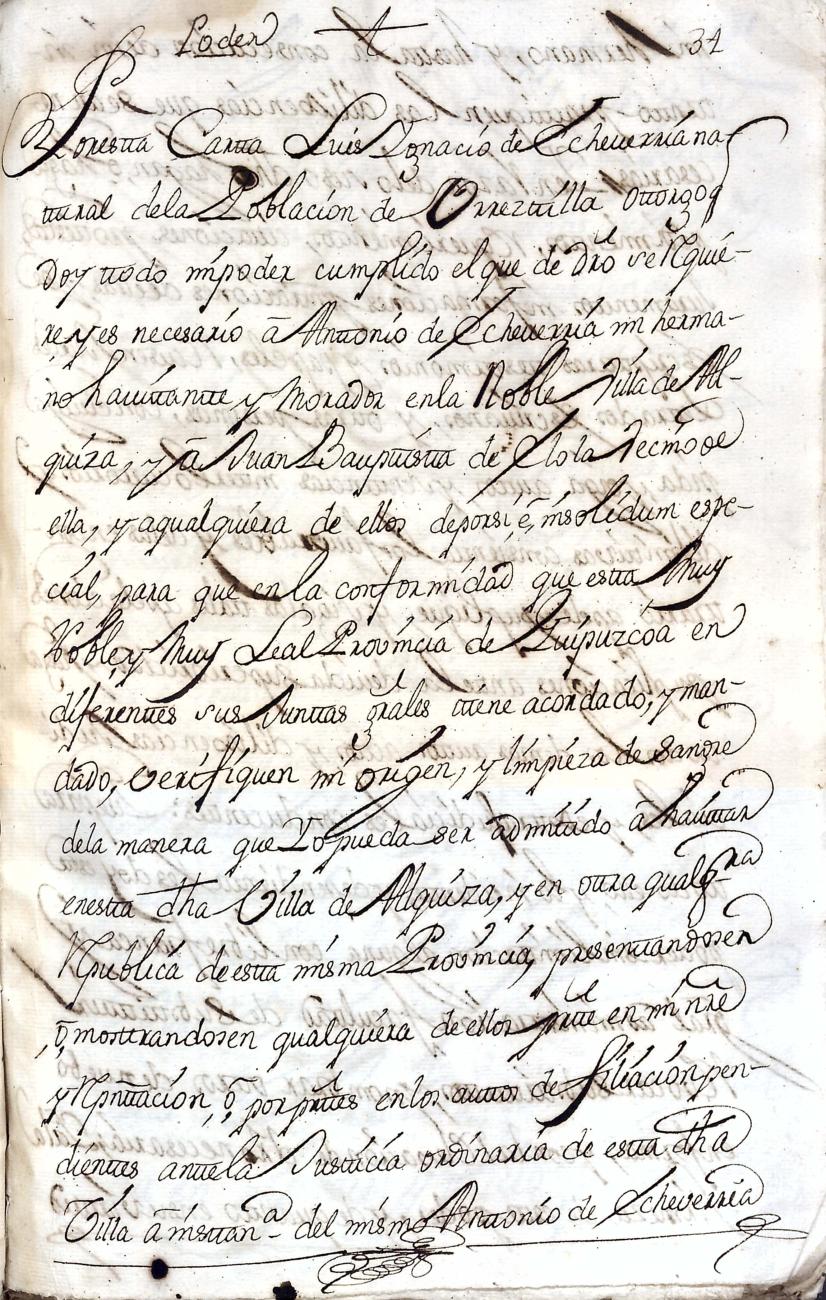 Poder 34
Por esta Carta Luis Ygnacio de Echeverria na-
tural de la Poblacion de Orreztilla otorgo q
Doy todo mi poder cumplido el que de dro se rquie-
re y es necesario â Antonio de Echeverria mi herma-
no havitante y Morador en la Noble Villa de Al-
quiza, y â Juan Bauptista de Elola Vecino de
ella, y a qualquiera de ellos de por si é, insolidum espe-
cial, para que en la conformidad que esta Muy
Noble y Muy Leal Provincia de Guipuzcoa en
diferentes sus Juntas grales tiene acordado, y man-
dado, verifiquen mi origen, y limpieza de Sangre
de la manera que Yo pueda ser admitido â havitar
en esta dha Villa de Alquiza, y en otra qualqra
Rpublica de esta misma Provincia, presentandosen
ô, mostrandosen qualquiera de ellos prte en mi nre
y Rpntacion, ô, por prtes en los autos de filiacion pen-
dientes ante la Justicia ordinaria de esta dha
Villa â instana del mismo Antonio de Echeverria